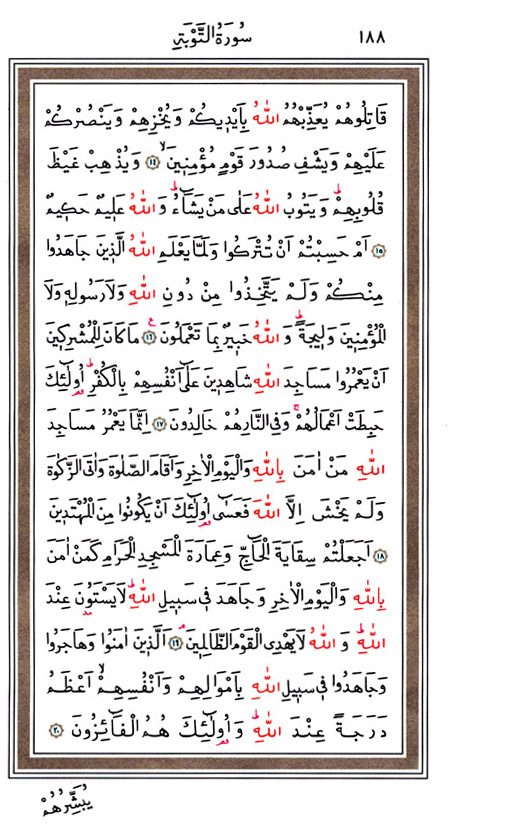 ١٨٨
سُورَةُ التَّوْبَةِ
قَاتِلُوهُمْ يُعَذِّبْهُمُ اللّٰهُ بِاَيْدِيكُمْ وَيُخْزِهِمْ وَيَنْصُرْكُمْ
عَلَيْهِمْ وَيَشْفِ صُدُورَ قَوْمٍ مُؤْمِنِينَۙ ﴿١٤﴾ وَيُذْهِبْ غَيْظَ
قُلُوبِهِمْۜ وَيَتُوبُ اللّٰهُ عَلٰى مَنْ يَشَٓاءُۜ وَاللّٰهُ عَلِيمٌ حَكِيمٌ
﴿١٥﴾ اَمْ حَسِبْتُمْ اَنْ تُتْرَكُوا وَلَمَّا يَعْلَمِ اللّٰهُ الَّذِينَ جَاهَدُوا
مِنْكُمْ وَلَمْ يَتَّخِذُوا مِنْ دُونِ اللّٰهِ وَلَا رَسُولِهِ وَلَا
الْمُؤْمِنِينَ وَلِيجَةًۜ وَاللّٰهُ خَبِيرٌ بِمَا تَعْمَلُونَ ﴿١٦﴾ مَا كَانَ لِلْمُشْرِكِينَ
اَنْ يَعْمُرُوا مَسَاجِدَ اللّٰهِ شَاهِدِينَ عَلٰٓى اَنْفُسِهِمْ بِالْكُفْرِۜ اُو۬لٰٓئِكَ
حَبِطَتْ اَعْمَالُهُمْۚ وَفِي النَّارِ هُمْ خَالِدُونَ ﴿١٧﴾ اِنَّمَا يَعْمُرُ مَسَاجِدَ
اللّٰهِ مَنْ اٰمَنَ بِاللّٰهِ وَالْيَوْمِ الْاٰخِرِ وَاَقَامَ الصَّلٰوةَ وَاٰتَى الزَّكٰوةَ
وَلَمْ يَخْشَ اِلَّا اللّٰهَ فَعَسٰٓى اُو۬لٰٓئِكَ اَنْ يَكُونُوا مِنَ الْمُهْتَدِينَ
﴿١٨﴾ اَجَعَلْتُمْ سِقَايَةَ الْحَٓاجِّ وَعِمَارَةَ الْمَسْجِدِ الْحَرَامِ كَمَنْ اٰمَنَ
بِاللّٰهِ وَالْيَوْمِ الْاٰخِرِ وَجَاهَدَ فِي سَبِيلِ اللّٰهِۜ لَا يَسْتَوُ۫نَ عِنْدَ
اللّٰهِۜ وَاللّٰهُ لَا يَهْدِي الْقَوْمَ الظَّالِمِينَۢ ﴿١٩﴾ اَلَّذِينَ اٰمَنُوا وَهَاجَرُوا
وَجَاهَدُوا فِي سَبِيلِ اللّٰهِ بِاَمْوَالِهِمْ وَاَنْفُسِهِمْۙ اَعْظَمُ
دَرَجَةً عِنْدَ اللّٰهِۜ وَاُو۬لٰٓئِكَ هُمُ الْفَٓائِزُونَ ﴿٢٠﴾
يُبَشِّرُهُمْ